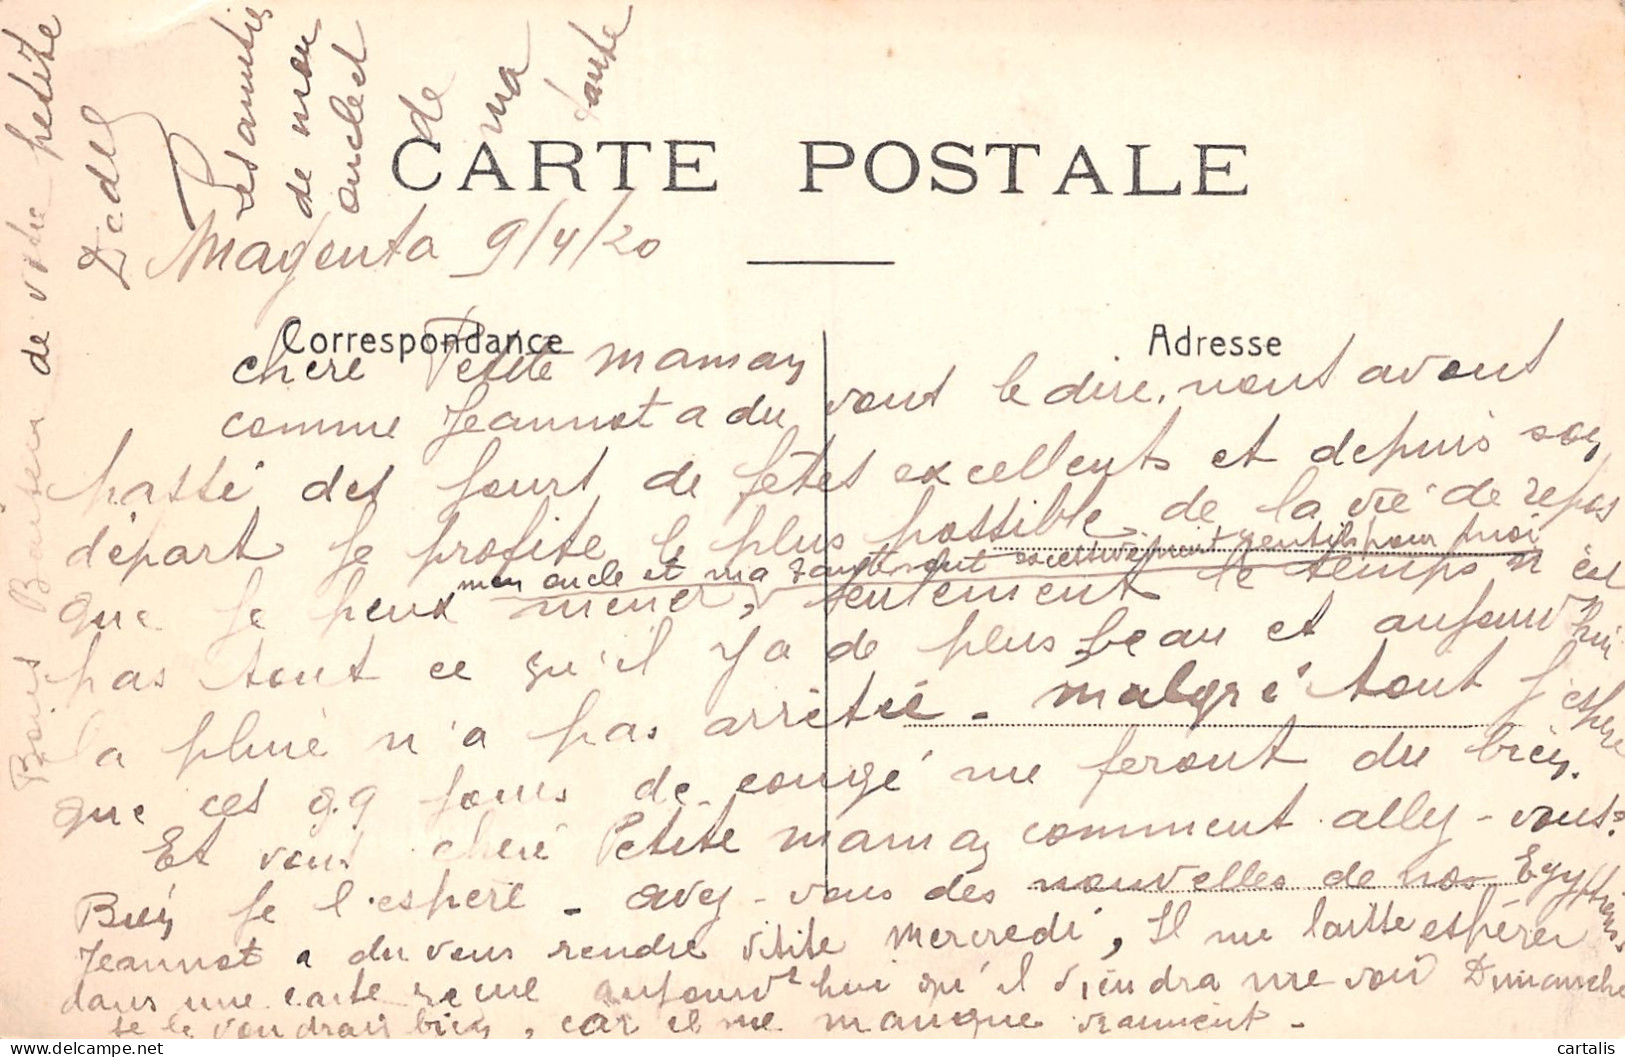 CARTE POSTALE
Magenta 9/4/20
Correspondance
Adresse
chère Petite maman
comme Jeannot a du vous le dire, nous avons
passé des jours de fêtes excellents et depuis son
départ je profite le plus possible de la vie de repos
mon oncle et ma tante sont excessivement gentils pour moi
que je peux mener, seulement le temps n'est
pas tout ce qu'il y a de plus beau et aujourd'hui
la pluie n'a pas arrêtée - malgré tout j'espère
que ces qq jours de congé me feront du bien.
Et vous chère Petite maman comment allez-vous?
Bien je l'espère - avez-vous des nouvelles de nos Egyptiens.
Jeannot a du vous rendre visite mercredi, Il me laisse espérer
dans une carte reçue aujourd'hui qu'il viendra me voir Dimanche
je le voudrais bien, car il me manque vraiment -
Bons Baisers de votre petite
Dedel
Les amitiés
de mon
oncle et
de
ma
tante
cartalis